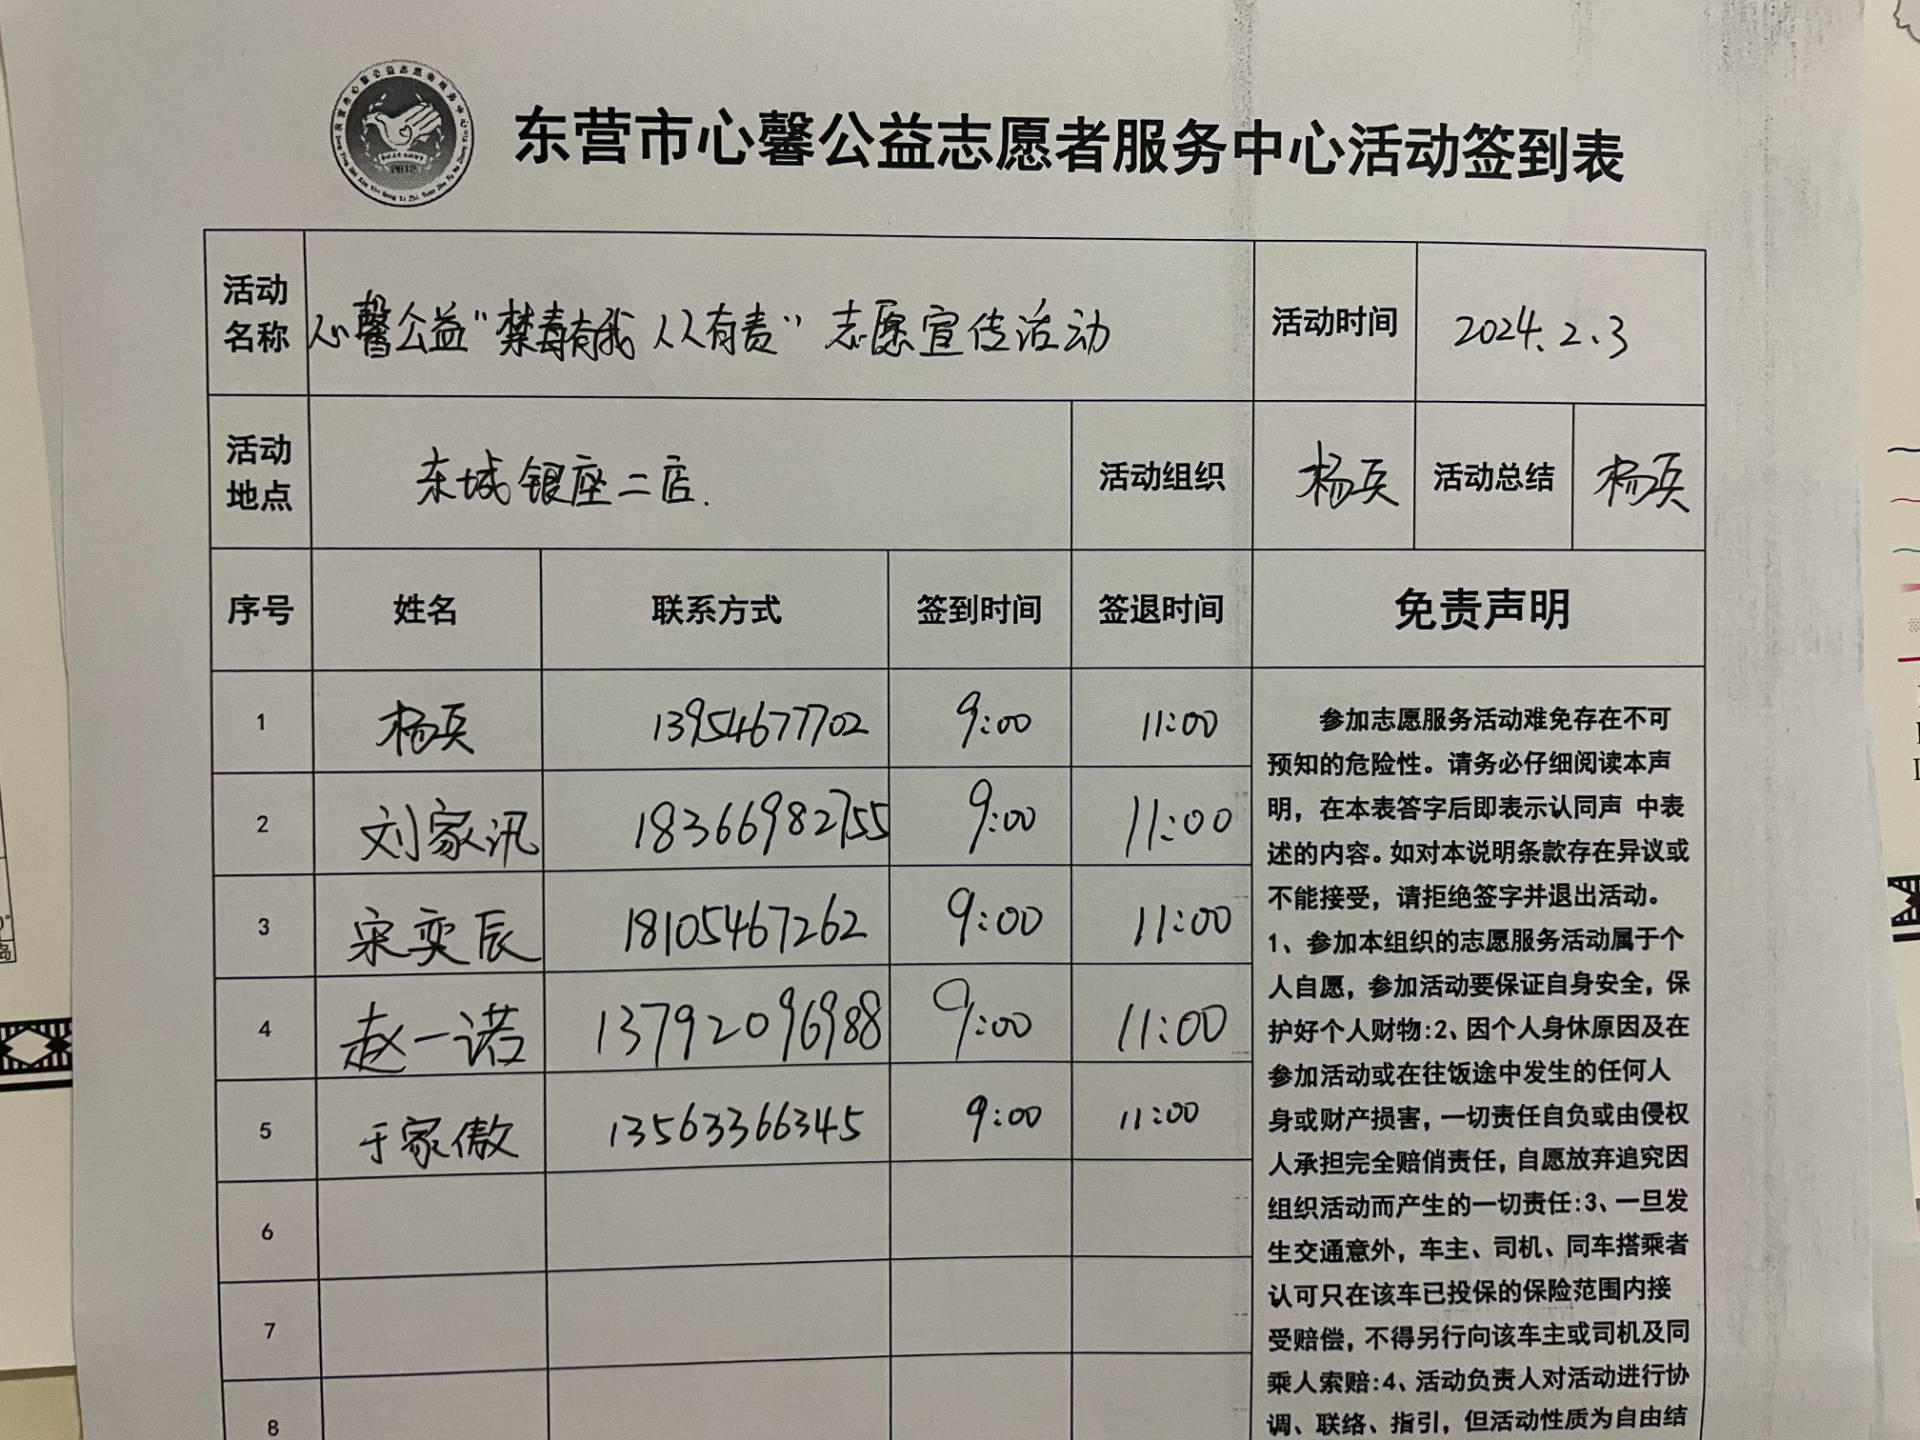 东营市心馨公益志愿者服务中心活动签到表
活动名称 心馨公益"禁毒有我 人人有责"志愿宣传活动 活动时间 2024.2.3
活动地点 东城银座二店. 活动组织 杨兵 活动总结 杨兵
序号 姓名 联系方式 签到时间 签退时间 免责声明
1 杨兵 13954677702 9:00 11:00
2 刘家汛 18366982755 9:00 11:00
3 宋奕辰 18105467262 9:00 11:00
4 赵一诺 13792096988 9:00 11:00
5 于家傲 13563366345 9:00 11:00
6
7
8
参加志愿服务活动难免存在不可
预知的危险性。请务必仔细阅读本声
明,在本表答字后即表示认同声 中表
述的内容。如对本说明条款存在异议或
不能接受,请拒绝签字并退出活动。
1、参加本组织的志愿服务活动属于个
人自愿,参加活动要保证自身安全,保
护好个人财物:2、因个人身休原因及在
参加活动或在往饭途中发生的任何人
身或财产损害,一切责任自负或由侵权
人承担完全赔俏责任,自愿放弃追究因
组织活动而产生的一切责任:3、一旦发
生交通意外,车主、司机、同车搭乘者
认可只在该车已投保的保险范围内接
受赔偿,不得另行向该车主或司机及同
乘人索赔:4、活动负责人对活动进行协
调、联络、指引,但活动性质为自由结